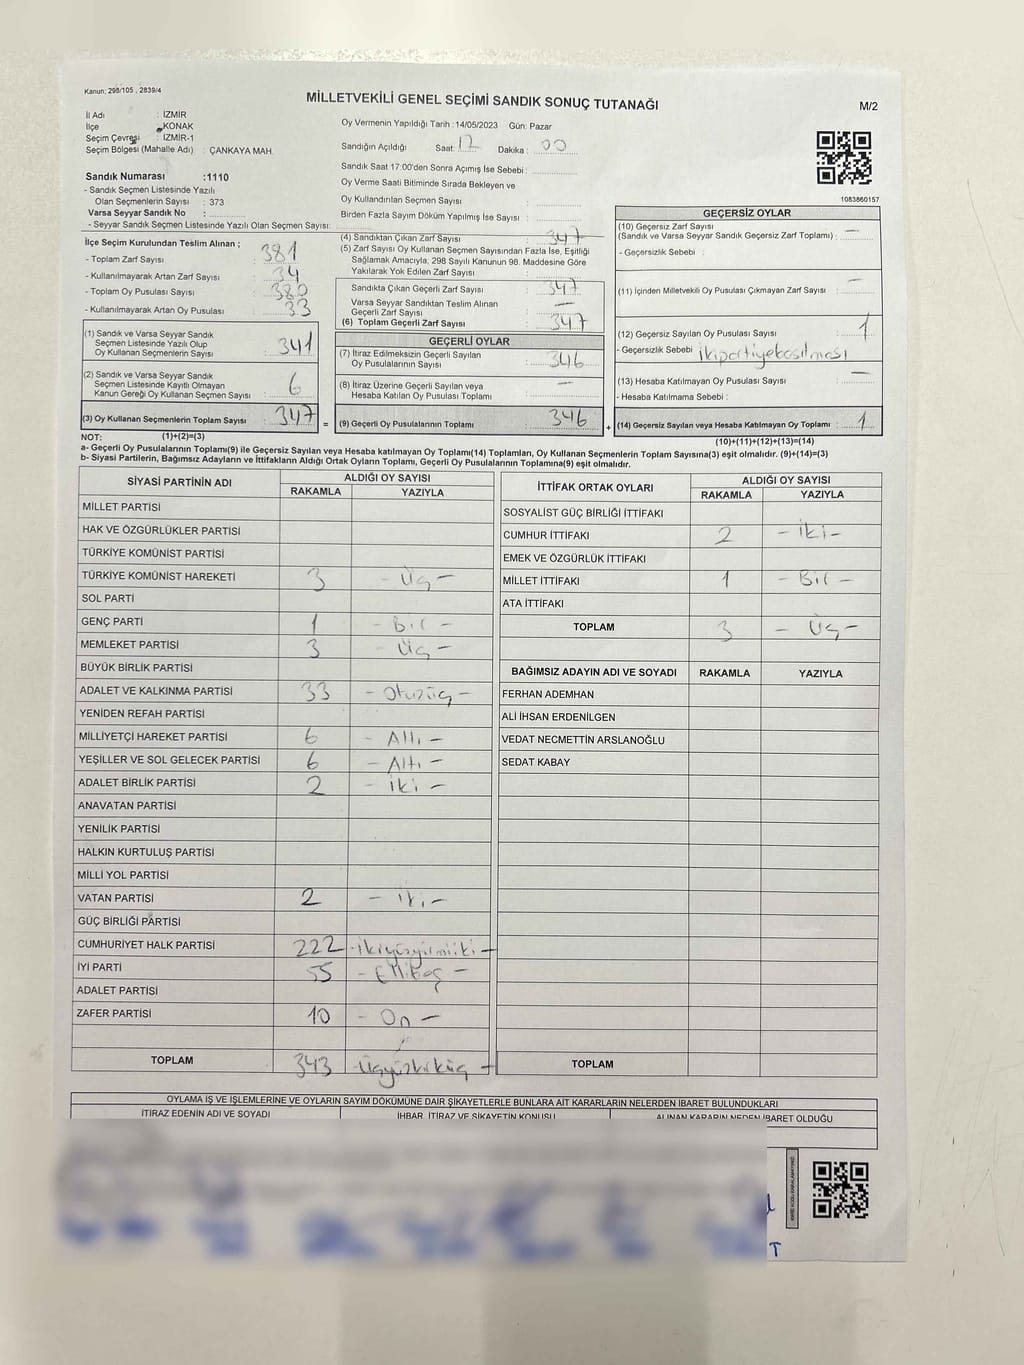 Kanun; 298/105 , 2839/4
MİLLETVEKİLİ GENEL SEÇİMİ SANDIK SONUÇ TUTANAĞI
M/2
İl Adı : İZMİR
İlçe : KONAK
Seçim Çevresi : İZMİR-1
Seçim Bölgesi (Mahalle Adı) : ÇANKAYA MAH.
Oy Vermenin Yapıldığı Tarih : 14/05/2023 Gün: Pazar
Sandığın Açıldığı Saat: 17 Dakika : 00
Sandık Saat 17:00'den Sonra Açımış İse Sebebi :
Oy Verme Saati Bitiminde Sırada Bekleyen ve
Oy Kullandırılan Seçmen Sayısı :
Birden Fazla Sayım Döküm Yapılmış İse Sayısı :
1083860157
Sandık Numarası :1110
- Sandık Seçmen Listesinde Yazılı
Olan Seçmenlerin Sayısı : 373
Varsa Seyyar Sandık No :
- Seyyar Sandık Seçmen Listesinde Yazılı Olan Seçmen Sayısı:
İlçe Seçim Kurulundan Teslim Alınan ;
- Toplam Zarf Sayısı : 381
- Kullanılmayarak Artan Zarf Sayısı : 34
- Toplam Oy Pusulası Sayısı : 380
- Kullanılmayarak Artan Oy Pusulası : 33
(1) Sandık ve Varsa Seyyar Sandık
Seçmen Listesinde Yazılı Olup
Oy Kullanan Seçmenlerin Sayısı : 341
(2) Sandık ve Varsa Seyyar Sandık
Seçmen Listesinde Kayıtlı Olmayan
Kanun Gereği Oy Kullanan Seçmen Sayısı : 6
(3) Oy Kullanan Seçmenlerin Toplam Sayısı : 347
(1)+(2)=(3)
(4) Sandıktan Çıkan Zarf Sayısı : 347
(5) Zarf Sayısı Oy Kullanan Seçmen Sayısından Fazla İse, Eşitliği
Sağlamak Amacıyla, 298 Sayılı Kanunun 98. Maddesine Göre
Yakılarak Yok Edilen Zarf Sayısı :
Sandıkta Çıkan Geçerli Zarf Sayısı : 347
Varsa Seyyar Sandıktan Teslim Alınan
Geçerli Zarf Sayısı : —
(6) Toplam Geçerli Zarf Sayısı : 347
GEÇERLİ OYLAR
(7) İtiraz Edilmeksizin Geçerli Sayılan
Oy Pusulalarının Sayısı : 346
(8) İtiraz Üzerine Geçerli Sayılan veya
Hesaba Katılan Oy Pusulası Toplamı : —
= (9) Geçerli Oy Pusulalarının Toplamı : 346
GEÇERSİZ OYLAR
(10) Geçersiz Zarf Sayısı : —
(Sandık ve Varsa Seyyar Sandık Geçersiz Zarf Toplamı)
- Geçersizlik Sebebi :
(11) İçinden Milletvekili Oy Pusulası Çıkmayan Zarf Sayısı : —
(12) Geçersiz Sayılan Oy Pusulası Sayısı : 1
- Geçersizlik Sebebi : iki partiye basılması
(13) Hesaba Katılmayan Oy Pusulası Sayısı : —
- Hesaba Katılmama Sebebi :
+ (14) Geçersiz Sayılan veya Hesaba Katılmayan Oy Toplamı : 1
(10)+(11)+(12)+(13)=(14)
NOT:
a- Geçerli Oy Pusulalarının Toplamı(9) ile Geçersiz Sayılan veya Hesaba katılmayan Oy Toplamı(14) Toplamları, Oy Kullanan Seçmenlerin Toplam Sayısına(3) eşit olmalıdır. (9)+(14)=(3)
b- Siyasi Partilerin, Bağımsız Adayların ve İttifakların Aldığı Ortak Oyların Toplamı, Geçerli Oy Pusulalarının Toplamına(9) eşit olmalıdır.
SİYASİ PARTİNİN ADI ALDIĞI OY SAYISI
RAKAMLA YAZIYLA
MİLLET PARTİSİ
HAK VE ÖZGÜRLÜKLER PARTİSİ
TÜRKİYE KOMÜNİST PARTİSİ
TÜRKİYE KOMÜNİST HAREKETİ 3 - Üç -
SOL PARTİ
GENÇ PARTİ 1 - Bir -
MEMLEKET PARTİSİ 3 - Üç -
BÜYÜK BİRLİK PARTİSİ
ADALET VE KALKINMA PARTİSİ 33 - Otuzüç -
YENİDEN REFAH PARTİSİ
MİLLİYETÇİ HAREKET PARTİSİ 6 - Altı -
YEŞİLLER VE SOL GELECEK PARTİSİ 6 - Altı -
ADALET BİRLİK PARTİSİ 2 - iki -
ANAVATAN PARTİSİ
YENİLİK PARTİSİ
HALKIN KURTULUŞ PARTİSİ
MİLLİ YOL PARTİSİ
VATAN PARTİSİ 2 - iki -
GÜÇ BİRLİĞİ PARTİSİ
CUMHURİYET HALK PARTİSİ 222 - ikiyüzyirmiiki -
İYİ PARTİ 55 - Ellibeş -
ADALET PARTİSİ
ZAFER PARTİSİ 10 - On -
TOPLAM 343 - Üçyüzkırküç -
İTTİFAK ORTAK OYLARI ALDIĞI OY SAYISI
RAKAMLA YAZIYLA
SOSYALİST GÜÇ BİRLİĞİ İTTİFAKI
CUMHUR İTTİFAKI 2 - iki -
EMEK VE ÖZGÜRLÜK İTTİFAKI
MİLLET İTTİFAKI 1 - Bir -
ATA İTTİFAKI
TOPLAM 3 - Üç -
BAĞIMSIZ ADAYIN ADI VE SOYADI RAKAMLA YAZIYLA
FERHAN ADEMHAN
ALİ İHSAN ERDENİLGEN
VEDAT NECMETTİN ARSLANOĞLU
SEDAT KABAY
TOPLAM
OYLAMA İŞ VE İŞLEMLERİNE VE OYLARIN SAYIM DÖKÜMÜNE DAİR ŞİKAYETLERLE BUNLARA AİT KARARLARIN NELERDEN İBARET BULUNDUKLARI
İTİRAZ EDENİN ADI VE SOYADI İHBAR, İTİRAZ VE ŞİKAYETİN KONUSU ALINAN KARARIN NEDEN İBARET OLDUĞU
T